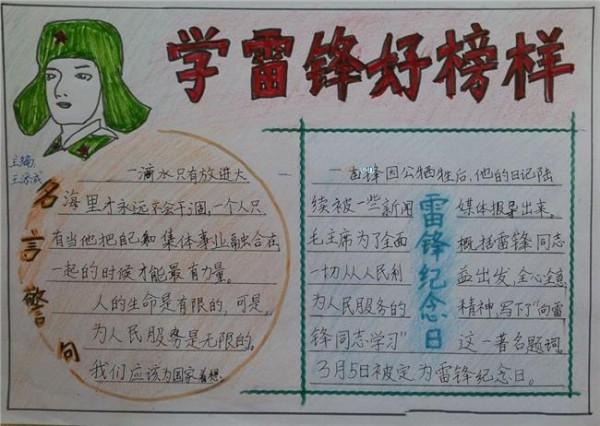 学雷锋好榜样
主编
名言警句
一滴水只有放进大
海里才永远不会干涸,一个人只
有当他把自己和集体事业融合在
一起的时候才能最有力量。
人的生命是有限的,可是,
为人民服务是无限的。
我们应该为国家着想.
雷锋纪念日
一雷锋因公牺牲后,他的日记陆
续被一些新闻 媒体报导出来。
毛主席为了全面 概括雷锋同志
一切从人民利 益出发,全心全意
为人民服务的 精神,写下了“向雷
锋同志学习” 这一著名题词。
3月5日被定为雷锋纪念日。